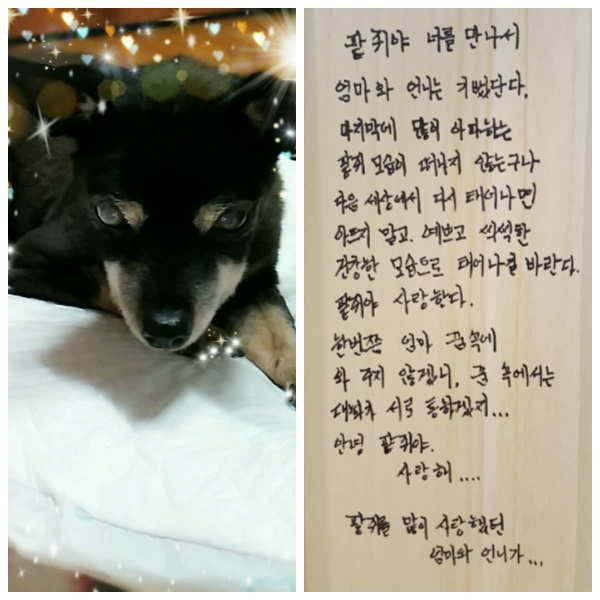 팥쥐야 너를 만나서
엄마와 언니는 기뻤단다.
마지막에 많이 아파하는
팥쥐 모습이 떠나지 않는구나
다음 세상에서 다시 태어나면
아프지 말고. 예쁘고 씩씩한
건강한 모습으로 태어나길 바란다.
팥쥐야 사랑한다.
한번쯤 엄마 꿈속에
와 주지 않겠니, 꿈 속에서는
대화가 서로 통하겠지...
안녕 팥쥐야.
사랑해....
팥쥐를 많이 사랑했던
엄마와 언니가...